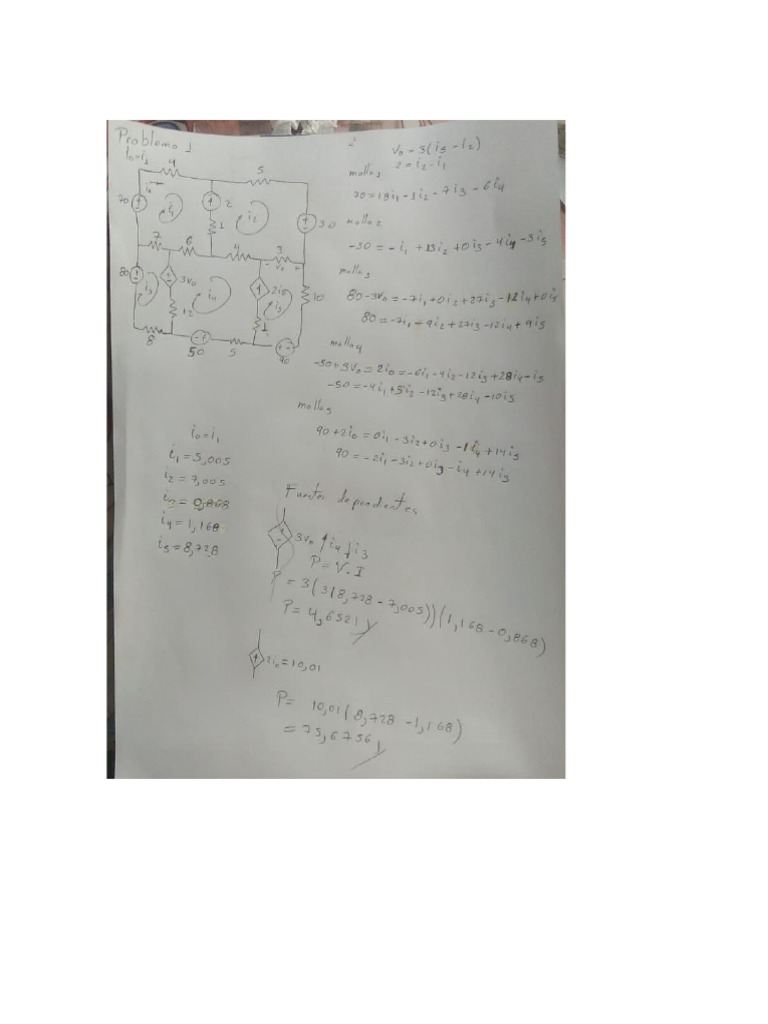 Problema 1
io=i1
4
5
70
io
i1
2
i2
1
30
7
6
4
3
- Vo +
80
i3
3Vo
i4
2io
i5
10
12
1
8
50
5
90
Vo = 3(i5 - i2)
2 = i2 - i1
malla 1
70 = 18i1 - 1i2 - 7i3 - 6i4
malla 2
-30 = -i1 + 13i2 + 0i3 - 4i4 - 3i5
malla 3
80 - 3Vo = -7i1 + 0i2 + 27i3 - 12i4 + 0i5
80 = -7i1 + 9i2 + 27i3 - 12i4 + 9i5
malla 4
-50 + 3Vo = 2io = -6i1 - 4i2 - 12i3 + 28i4 - i5
-50 = -4i1 + 5i2 - 12i3 + 28i4 - 10i5
malla 5
90 + 2io = 0i1 - 3i2 + 0i3 - 1i4 + 14i5
90 = -2i1 - 3i2 + 0i3 - i4 + 14i5
io = i1
i1 = 5,005
i2 = 7,005
i3 = 0,868
i4 = 1,168
i5 = 8,728
Fuentes dependientes
3Vo ↑i4 ↓i3
P = V . I
P = 3(3(8,728 - 7,005))(1,168 - 0,868)
P = 4,6521
2io = 10,01
P = 10,01(8,728 - 1,168)
= 75,6756